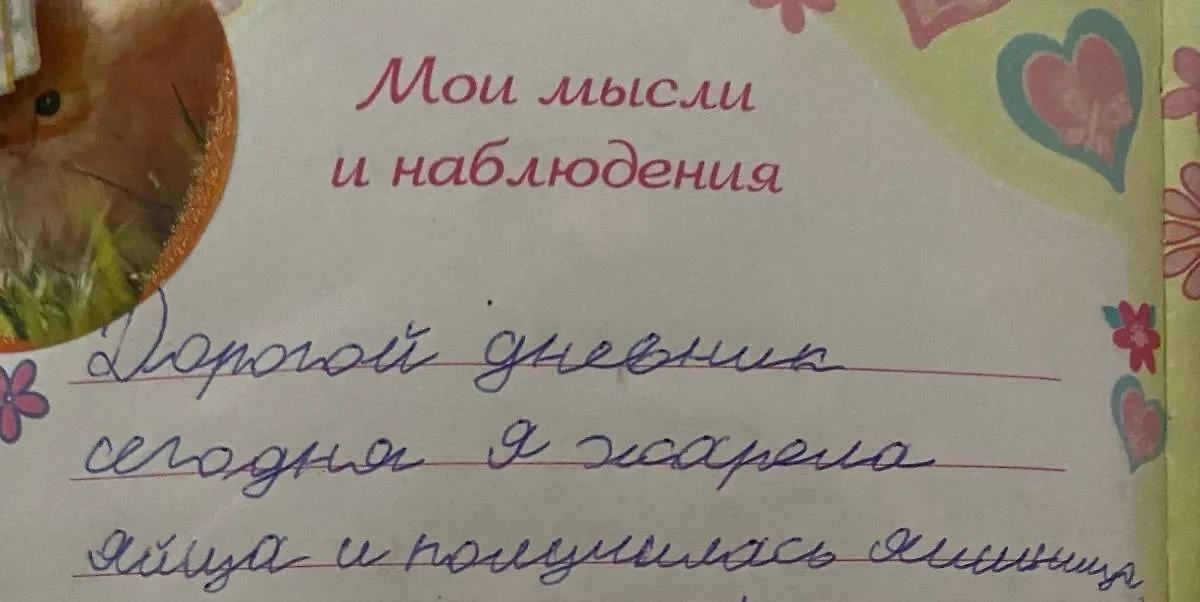 Мои мысли
и наблюдения
Дорогой дневник
сегодня я жарела
яйца и получилась яишница